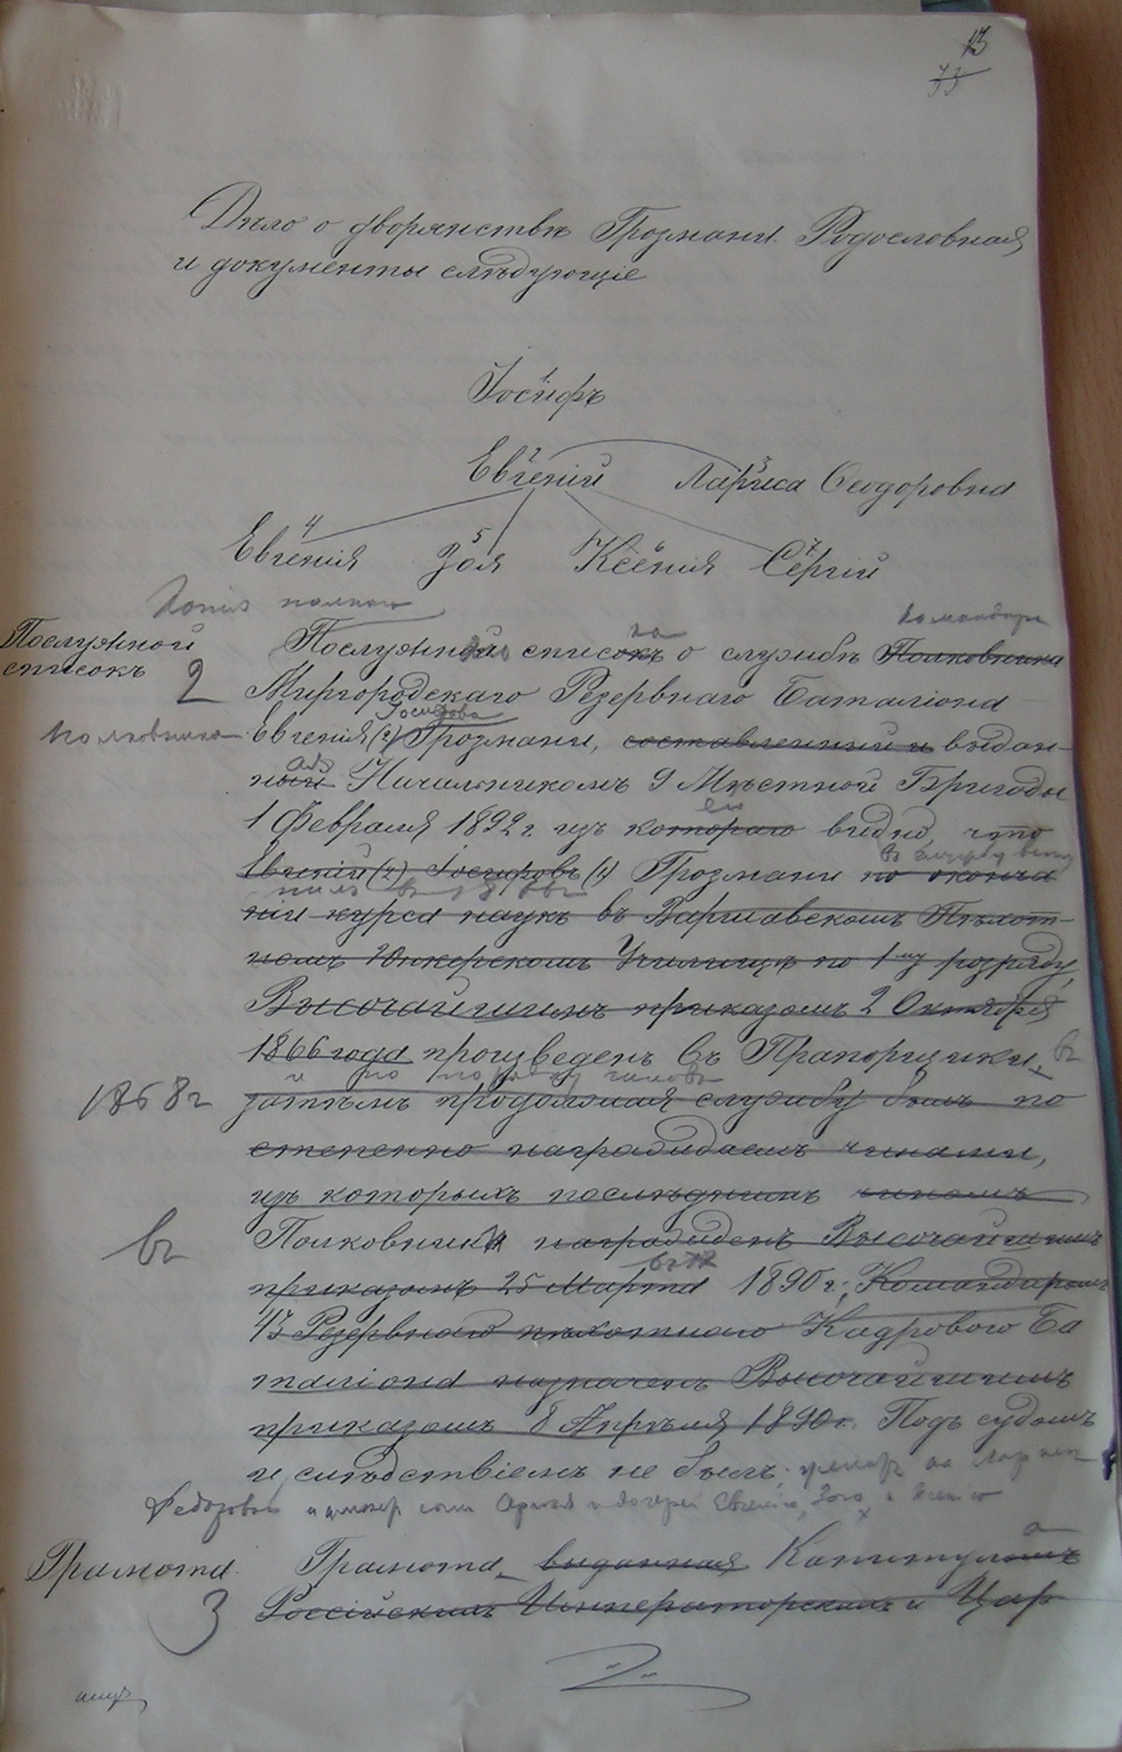 13
73
Дѣло о дворянствѣ Грозмани. Родословная
и документы слѣдующіе
1
Іосифъ
2 3
Евгеній Лариса Ѳеодоровна
4 5 6 7
Евгенія Зоя Ксенія Сергій
Копія
командира
Послужной
списокъ
2
Послужной списокъ о службѣ Полковника
Миргородскаго Резервнаго Баталіона
Іосифова
Полковника Евгенія (2) Грозмани, составленный и выдан-
ный Начальникомъ 9 Мѣстной Бригады
1 Февраля 1892 г. изъ котораго видно, что
въ службу всту
Евгеній (2) Іосифовъ (1) Грозмани по оконча
пилъ въ
ніи курса наукъ въ Варшавскомъ Пѣхот-
номъ Юнкерскомъ Училищѣ по 1му розряду,
Высочайшимъ приказомъ 2 Октября
1866 года произведенъ въ Прапорщики, въ
и по порядку чиновъ
1868 г затѣмъ продолжая службу былъ по
степенно награждаемъ чинами,
изъ которыхъ послѣднимъ чиномъ
въ Полковника награжденъ Высочайшимъ
приказомъ 25 Марта 1890 г.; Командиромъ
43 Резервнаго пѣхотнаго Кадроваго Ба
таліона назначенъ Высочайшимъ
приказомъ 8 Апрѣля 1890 г. Подъ судомъ
и слѣдствіемъ не былъ; женатъ на Ларисѣ
Федоровой и имѣетъ сына Сергія и дочерей Евгенію, Зою и Ксенію
Грамота
3
Грамота, выданная Капитуломъ
Россійскихъ Императорскихъ и Цар